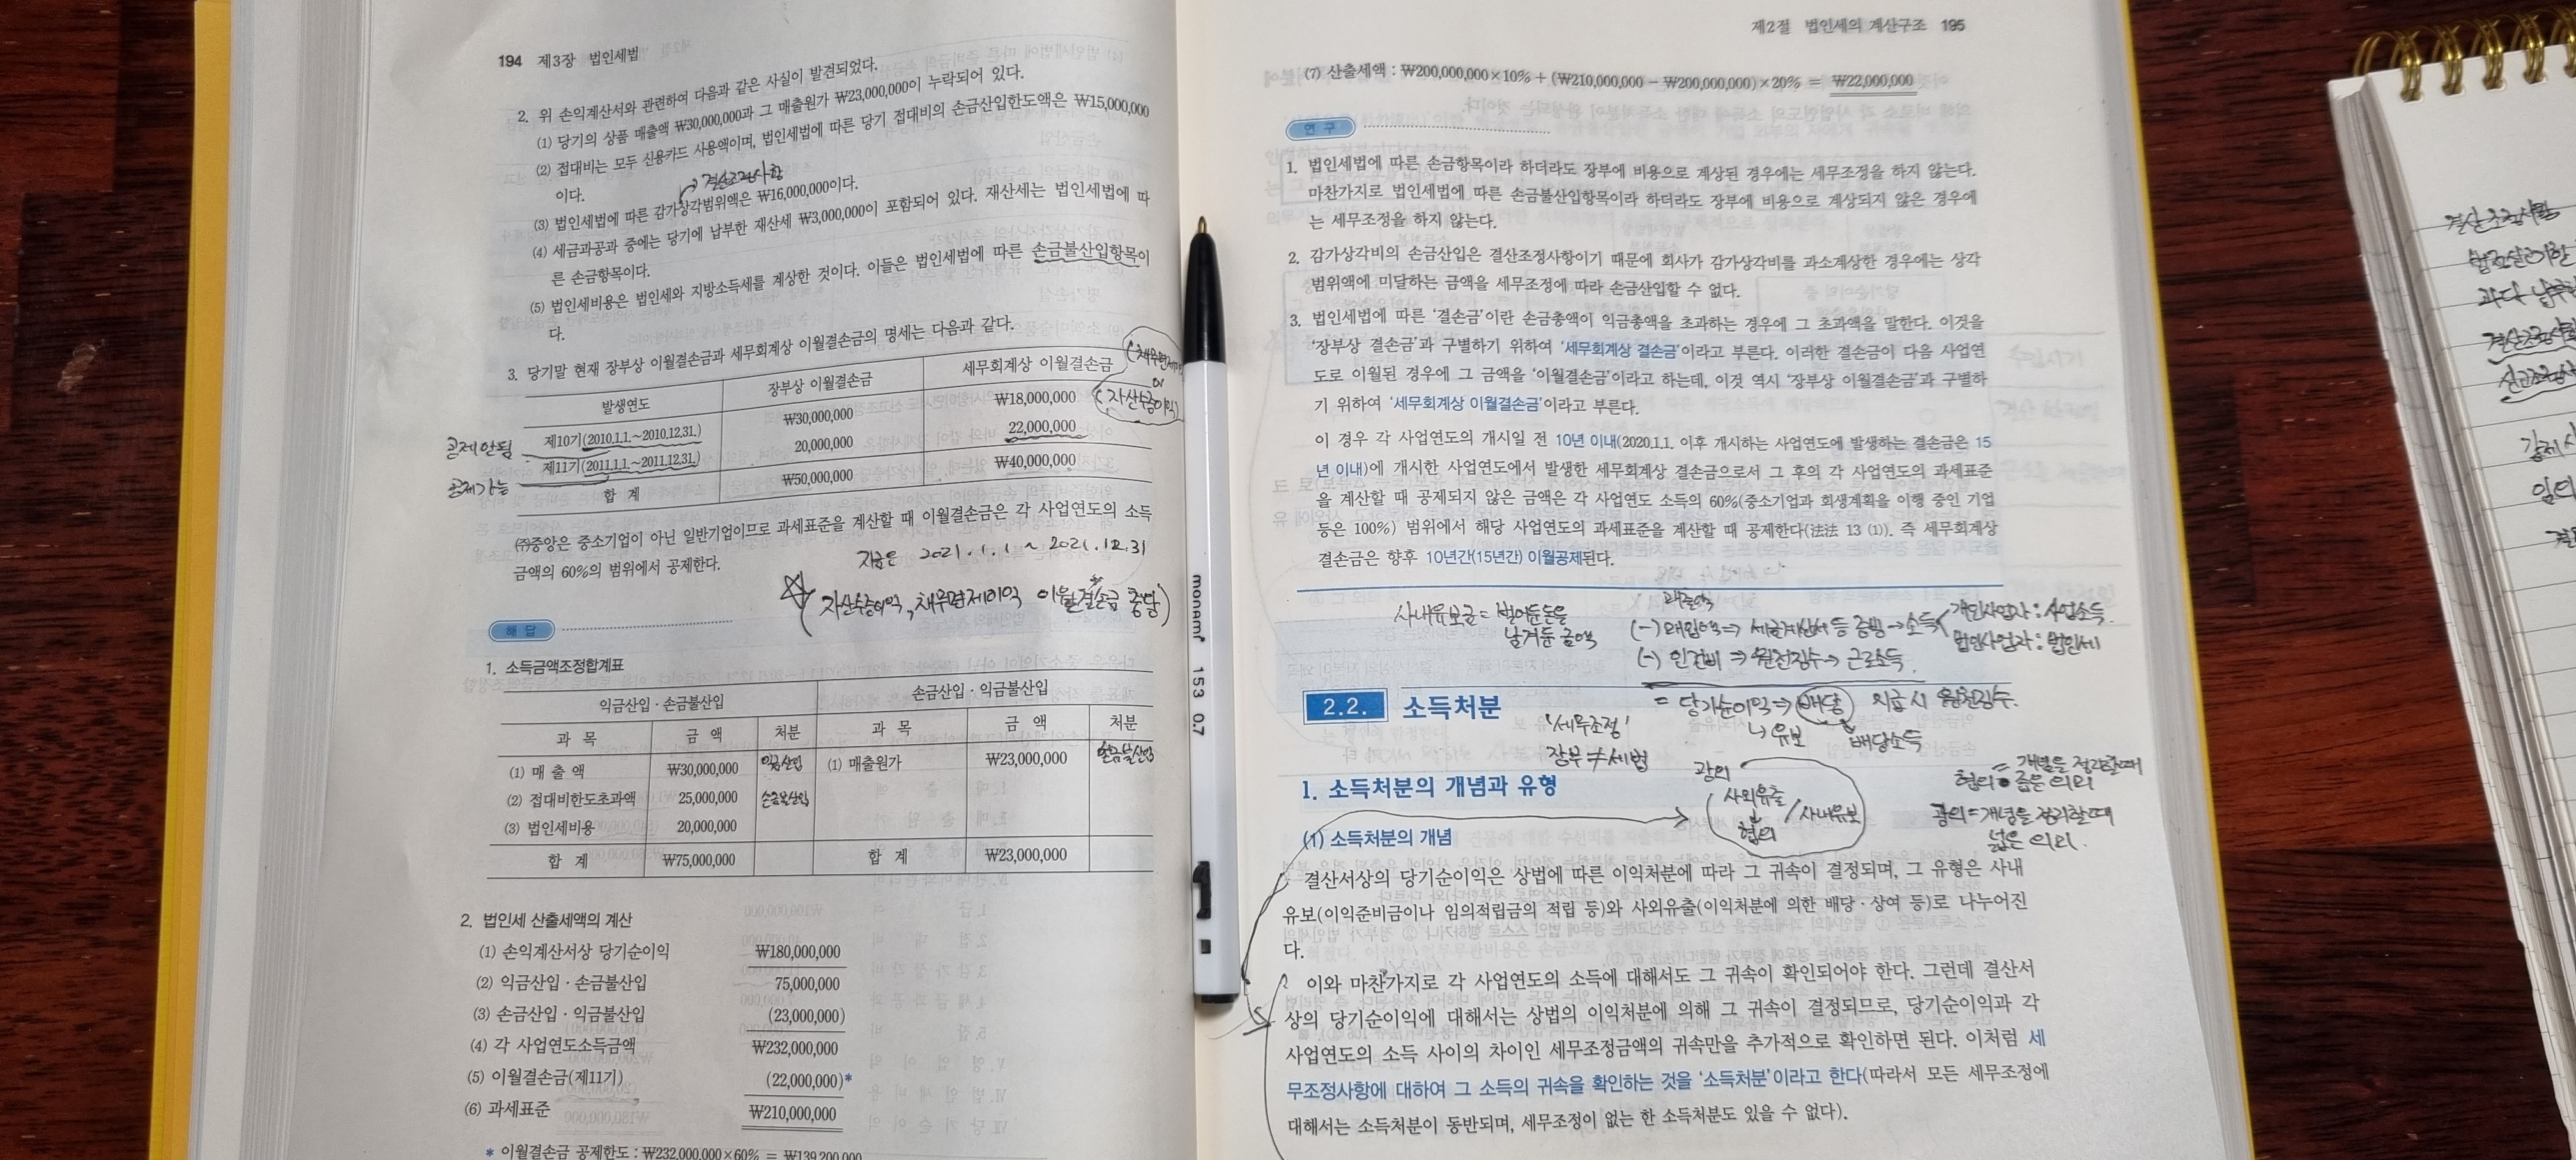 194 제3장 법인세법
2. 위 손익계산서와 관련하여 다음과 같은 사실이 발견되었다.
(1) 당기의 상품 매출액 ₩30,000,000과 그 매출원가 ₩23,000,000이 누락되어 있다.
(2) 접대비는 모두 신용카드 사용액이며, 법인세법에 따른 당기 접대비의 손금산입한도액은 ₩15,000,000
이다.
결산조정사항
(3) 법인세법에 따른 감가상각범위액은 ₩16,000,000이다.
(4) 세금과공과 중에는 당기에 납부한 재산세 ₩3,000,000이 포함되어 있다. 재산세는 법인세법에 따
른 손금항목이다.
(5) 법인세비용은 법인세와 지방소득세를 계상한 것이다. 이들은 법인세법에 따른 손금불산입항목이
다.
3. 당기말 현재 장부상 이월결손금과 세무회계상 이월결손금의 명세는 다음과 같다.
발생연도 장부상 이월결손금 세무회계상 이월결손금
자산수증이익
공제안됨 제10기(2010.1.1.~2010.12.31.) ₩30,000,000 ₩18,000,000
공제가능 제11기(2011.1.1.~2011.12.31.) 20,000,000 22,000,000
합 계 ₩50,000,000 ₩40,000,000
㈜중앙은 중소기업이 아닌 일반기업이므로 과세표준을 계산할 때 이월결손금은 각 사업연도의 소득
금액의 60%의 범위에서 공제한다.
지금은 2021.1.1 ~ 2021.12.31
자산수증이익, 채무면제이익 이월결손금 충당)
해 답
1. 소득금액조정합계표
익금산입 · 손금불산입 손금산입 · 익금불산입
과 목 금 액 처분 과 목 금 액 처분
(1) 매 출 액 ₩30,000,000 익금산입 (1) 매출원가 ₩23,000,000
(2) 접대비한도초과액 25,000,000 손금불산입
(3) 법인세비용 20,000,000
합 계 ₩75,000,000 합 계 ₩23,000,000
2. 법인세 산출세액의 계산
(1) 손익계산서상 당기순이익 ₩180,000,000
(2) 익금산입 · 손금불산입 75,000,000
(3) 손금산입 · 익금불산입 (23,000,000)
(4) 각 사업연도소득금액 ₩232,000,000
(5) 이월결손금(제11기) (22,000,000)*
(6) 과세표준 ₩210,000,000
* 이월결손금 공제한도 : ₩232,000,000×60% = ₩139,200,000
monami 153 0.7
제2절 법인세의 계산구조 195
(7) 산출세액 : ₩200,000,000×10% + (₩210,000,000 − ₩200,000,000)×20% = ₩22,000,000
연 구
1. 법인세법에 따른 손금항목이라 하더라도 장부에 비용으로 계상된 경우에는 세무조정을 하지 않는다.
마찬가지로 법인세법에 따른 손금불산입항목이라 하더라도 장부에 비용으로 계상되지 않은 경우에
는 세무조정을 하지 않는다.
2. 감가상각비의 손금산입은 결산조정사항이기 때문에 회사가 감가상각비를 과소계상한 경우에는 상각
범위액에 미달하는 금액을 세무조정에 따라 손금산입할 수 없다.
3. 법인세법에 따른 '결손금'이란 손금총액이 익금총액을 초과하는 경우에 그 초과액을 말한다. 이것을
'장부상 결손금'과 구별하기 위하여 '세무회계상 결손금'이라고 부른다. 이러한 결손금이 다음 사업연
도로 이월된 경우에 그 금액을 '이월결손금'이라고 하는데, 이것 역시 '장부상 이월결손금'과 구별하
기 위하여 '세무회계상 이월결손금'이라고 부른다.
이 경우 각 사업연도의 개시일 전 10년 이내(2020.1.1. 이후 개시하는 사업연도에 발생하는 결손금은 15
년 이내)에 개시한 사업연도에서 발생한 세무회계상 결손금으로서 그 후의 각 사업연도의 과세표준
을 계산할 때 공제되지 않은 금액은 각 사업연도 소득의 60%(중소기업과 회생계획을 이행 중인 기업
등은 100%) 범위에서 해당 사업연도의 과세표준을 계산할 때 공제한다(法法 13 (1)). 즉 세무회계상
결손금은 향후 10년간(15년간) 이월공제된다.
사내유보금 = 벌어둔돈을
남겨둔 금액
매출액
(-) 매입액 ⇒ 세금계산서 등 증빙 → 소득
개인사업자 : 사업소득
법인사업자 : 법인세
(-) 인건비 ⇒ 원천징수 → 근로소득
= 당기순이익 ⇒ 배당 지급시 원천징수.
↳ 유보 배당소득
2.2. 소득처분
'세무조정'
장부≠세법
광의
사외유출 / 사내유보
협의
개념을 정리할때
협의 = 좁은 의미
광의 = 개념을 정리할때
넓은 의미.
1. 소득처분의 개념과 유형
(1) 소득처분의 개념
결산서상의 당기순이익은 상법에 따른 이익처분에 따라 그 귀속이 결정되며, 그 유형은 사내
유보(이익준비금이나 임의적립금의 적립 등)와 사외유출(이익처분에 의한 배당 · 상여 등)로 나누어진
다.
이와 마찬가지로 각 사업연도의 소득에 대해서도 그 귀속이 확인되어야 한다. 그런데 결산서
상의 당기순이익에 대해서는 상법의 이익처분에 의해 그 귀속이 결정되므로, 당기순이익과 각
사업연도의 소득 사이의 차이인 세무조정금액의 귀속만을 추가적으로 확인하면 된다. 이처럼 세
무조정사항에 대하여 그 소득의 귀속을 확인하는 것을 '소득처분'이라고 한다(따라서 모든 세무조정에
대해서는 소득처분이 동반되며, 세무조정이 없는 한 소득처분도 있을 수 없다).
결산조정사항
과다
강제
임의